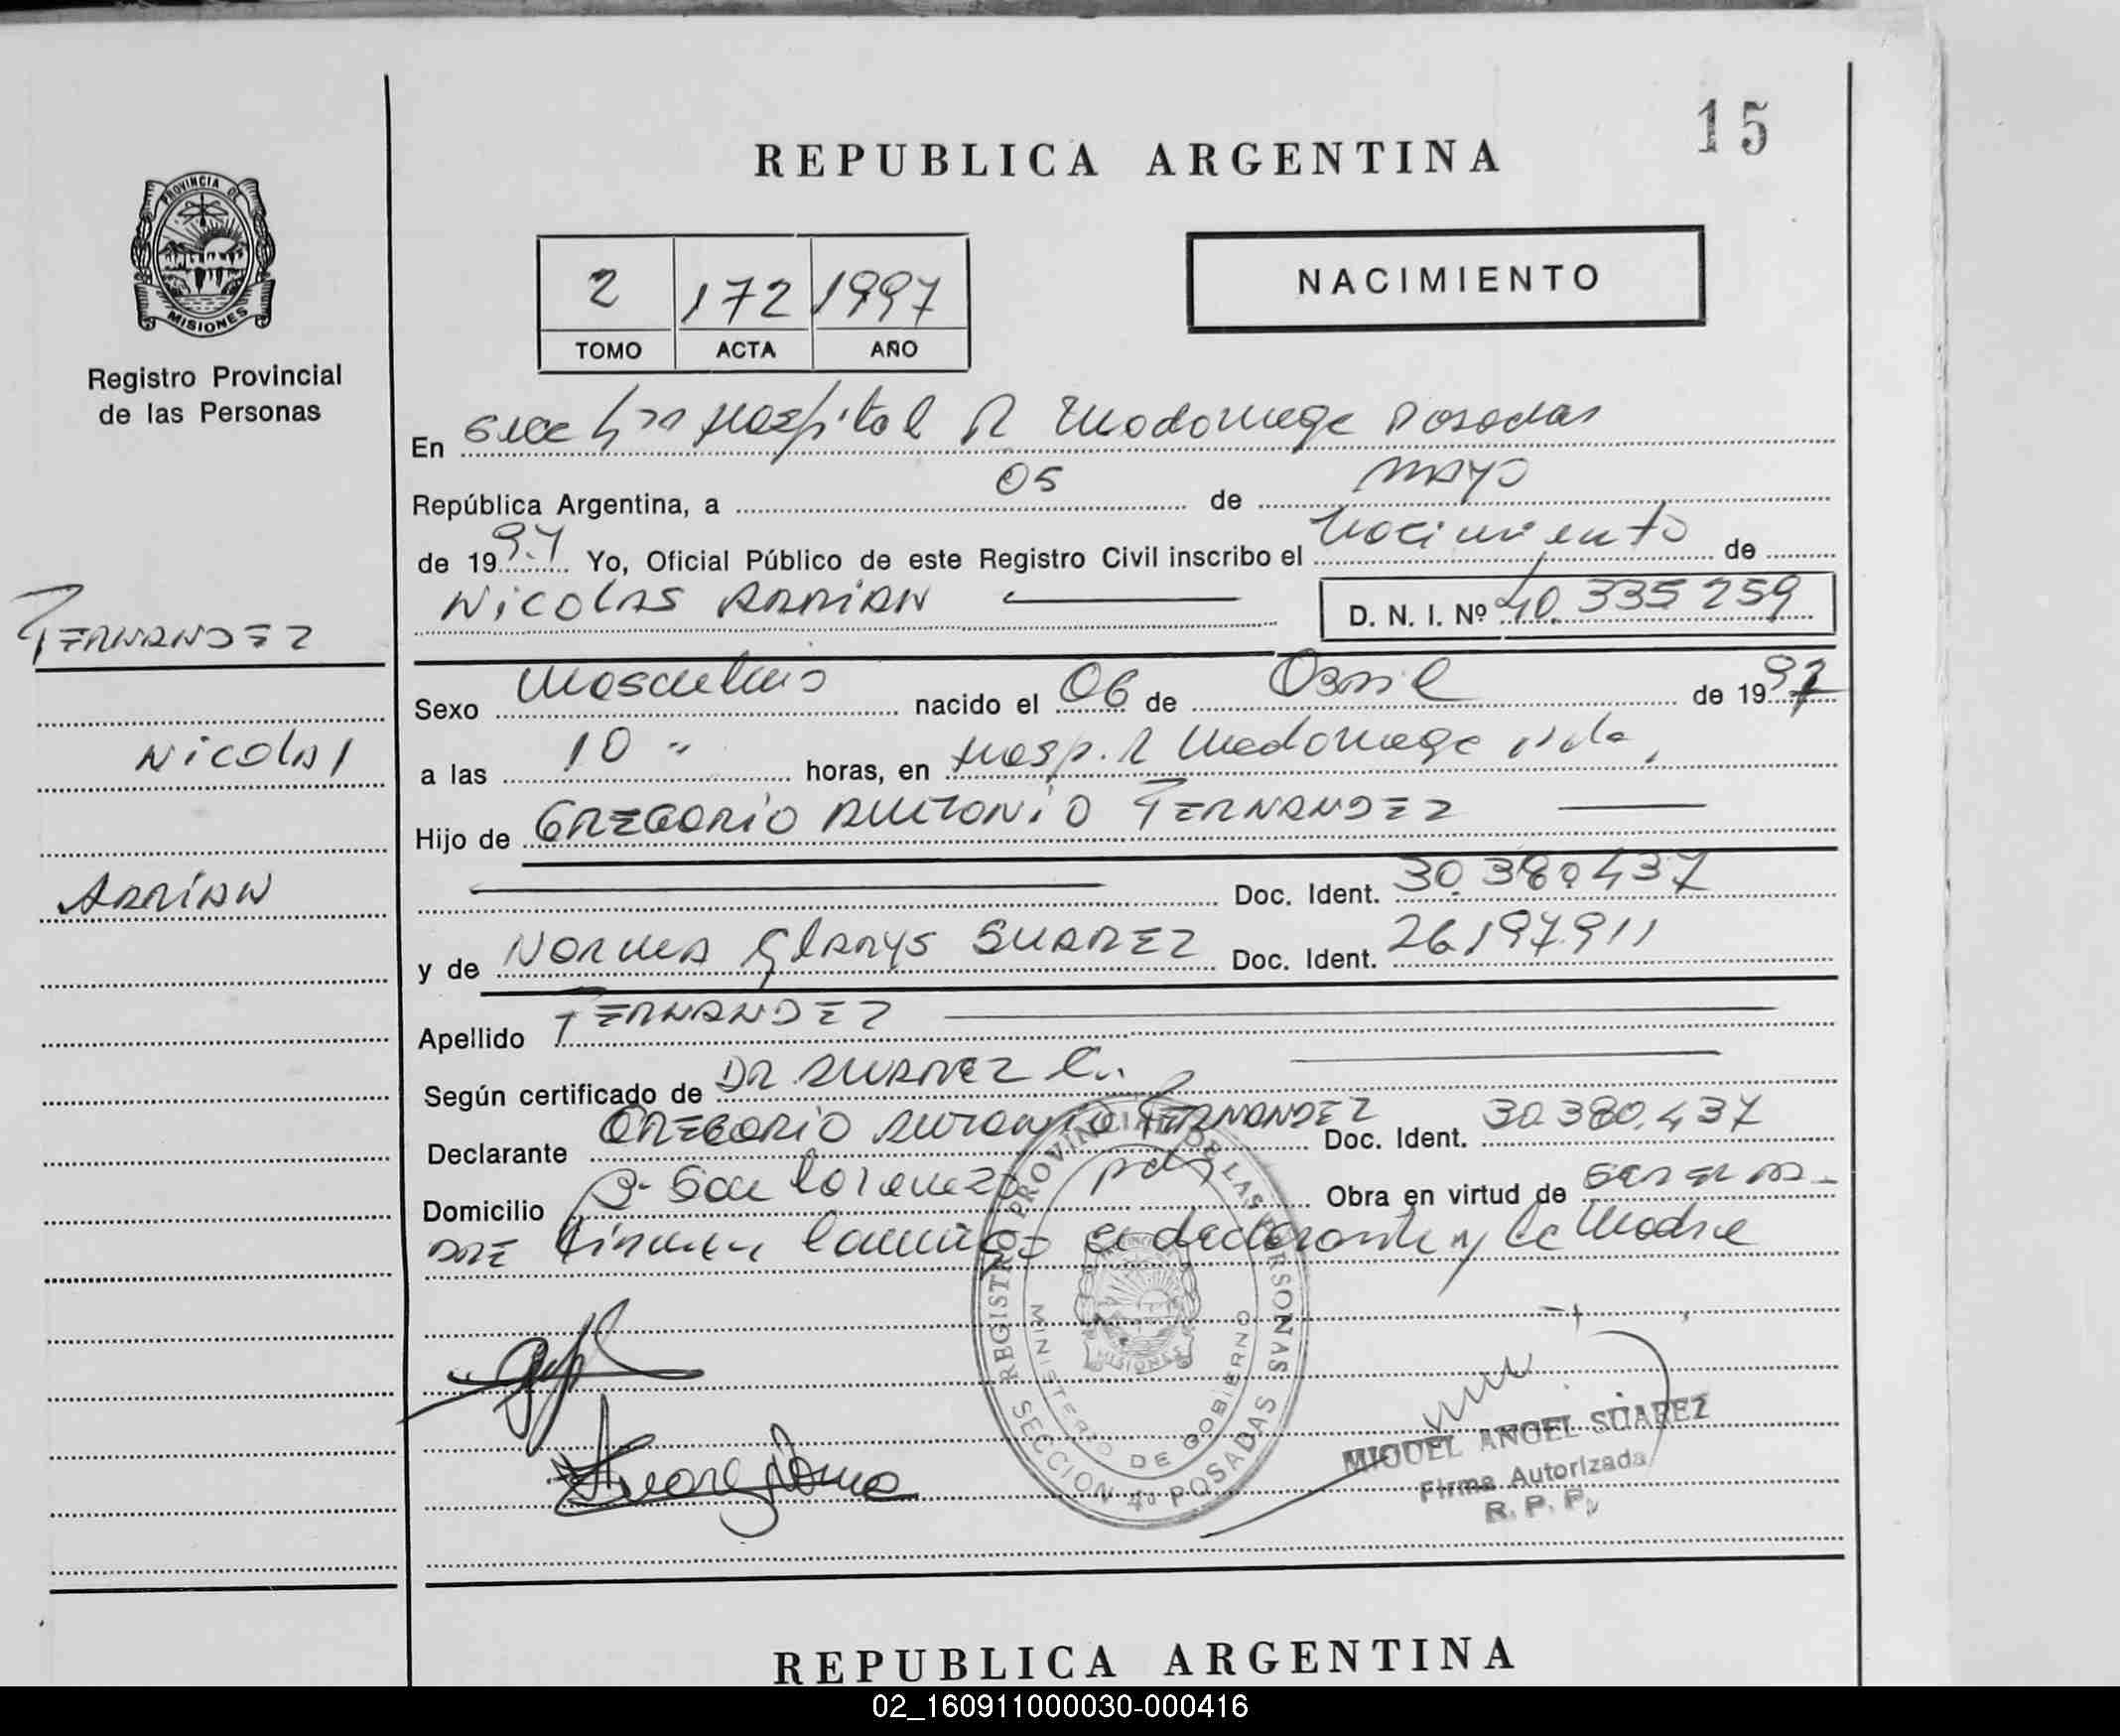 15
REPUBLICA ARGENTINA
PROVINCIA DE
MISIONES
Registro Provincial
de las Personas
2 172 1997
TOMO ACTA AÑO
NACIMIENTO
En Hospital R Madariaga Posadas
República Argentina, a 05 de mayo
de 1997 Yo, Oficial Público de este Registro Civil inscribo el Nacimiento de
NICOLAS ADRIAN D. N. I. Nº 40.335259
FERNANDEZ
NICOLAS
ADRIAN
Sexo Masculino nacido el 06 de Abril de 1997
a las 10 horas, en Hosp. R Madariaga
Hijo de GREGORIO ANTONIO FERNANDEZ
Doc. Ident. 30.380437
y de NORMA GLADYS SUAREZ Doc. Ident. 26.197.911
Apellido FERNANDEZ
Según certificado de DR SUAREZ C.
Declarante GREGORIO ANTONIO FERNANDEZ Doc. Ident. 30.380.437
Domicilio B. San Lorenzo pdas Obra en virtud de SER EL PA-
DRE Firman conmigo el declarante y la Madre
REGISTRO PROVINCIAL DE LAS PERSONAS
MINISTERIO DE GOBIERNO
MISIONES
SECCION 4ª POSADAS
MIGUEL ANGEL SUAREZ
Firma Autorizada
R. P. P.
REPUBLICA ARGENTINA
02_160911000030-000416